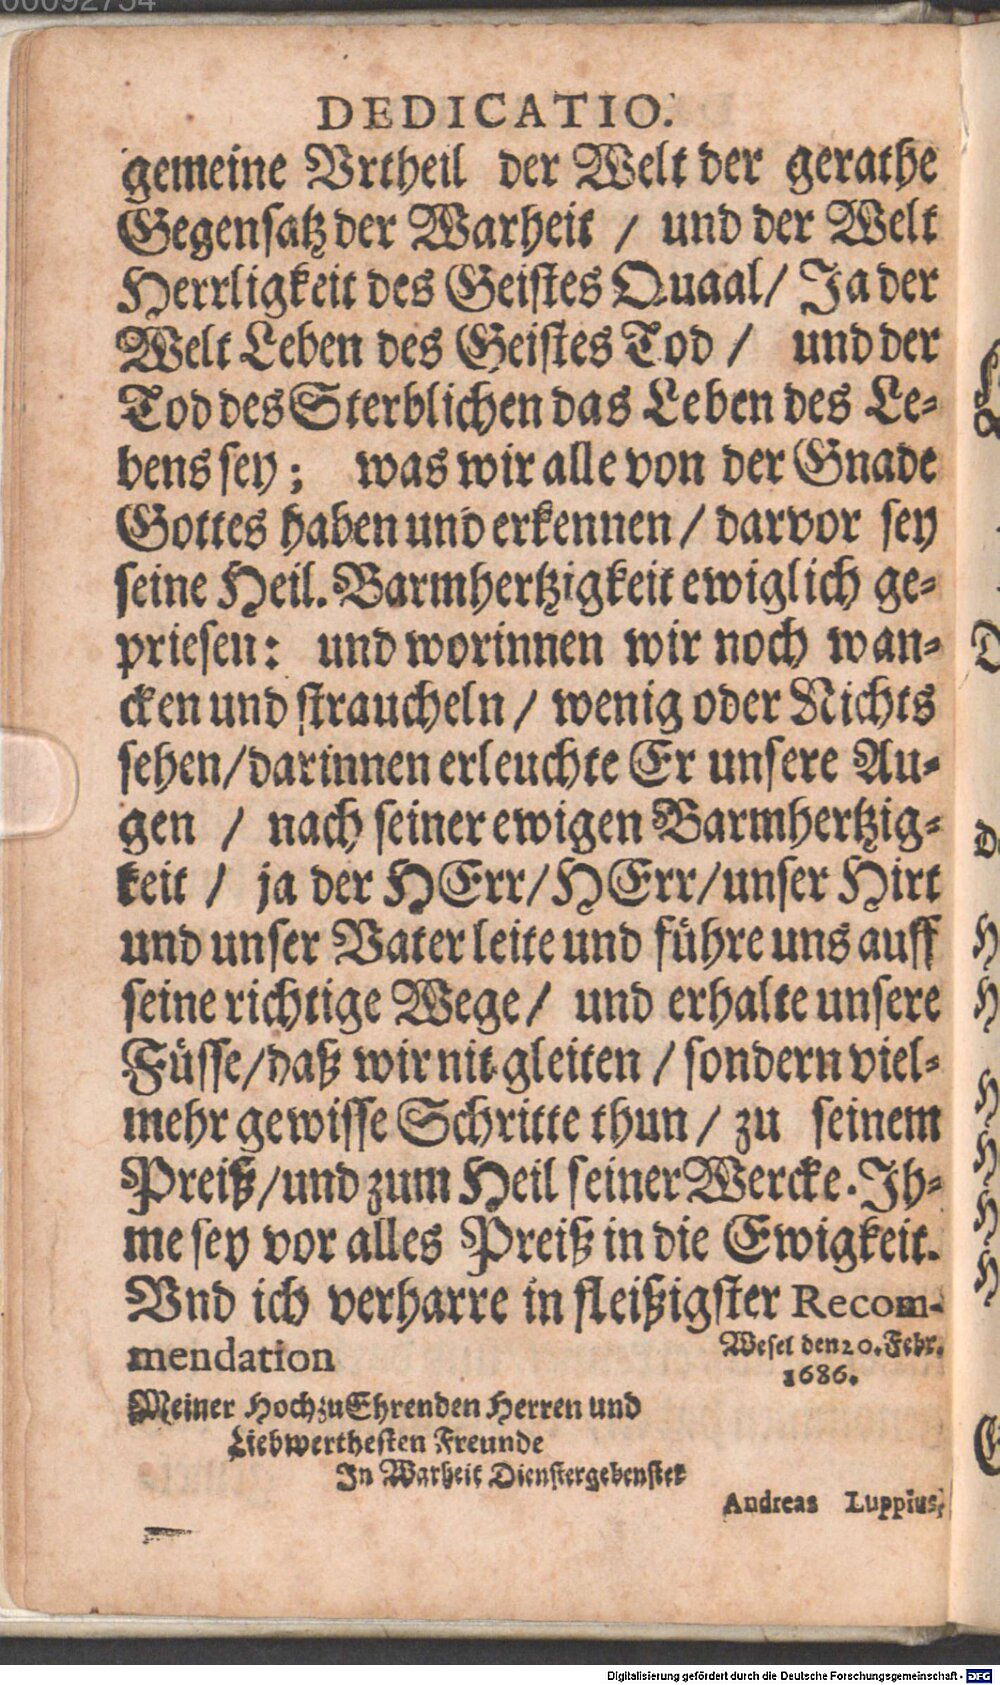 DEDICATIO.
gemeine Vrtheil der Welt der gerathe
Gegensatz der Warheit / und der Welt
Herrligkeit des Geistes Quaal / Ja der
Welt Leben des Geistes Tod / und der
Tod des Sterblichen das Leben des Le-
bens sey; was wir alle von der Gnade
Gottes haben und erkennen / darvor sey
seine Heil. Barmhertzigkeit ewiglich ge-
priesen: und worinnen wir noch wan-
cken und straucheln / wenig oder Nichts
sehen / darinnen erleuchte Er unsere Au-
gen / nach seiner ewigen Barmhertzig-
keit / ja der HErr / HErr / unser Hirt
und unser Vater leite und führe uns auff
seine richtige Wege / und erhalte unsere
Füsse / daß wir nit gleiten / sondern viel-
mehr gewisse Schritte thun / zu seinem
Preiß / und zum Heil seiner Wercke. Ih-
me sey vor alles Preiß in die Ewigkeit.
Vnd ich verharre in fleißigster Recom-
mendation
Wesel den 20. Febr.
1686.
Meiner HochzuEhrenden Herren und
Liebwerthesten Freunde
In Warheit Dienstergebenster
Andreas Luppius.
Digitalisierung gefördert durch die Deutsche Forschungsgemeinschaft - DFG